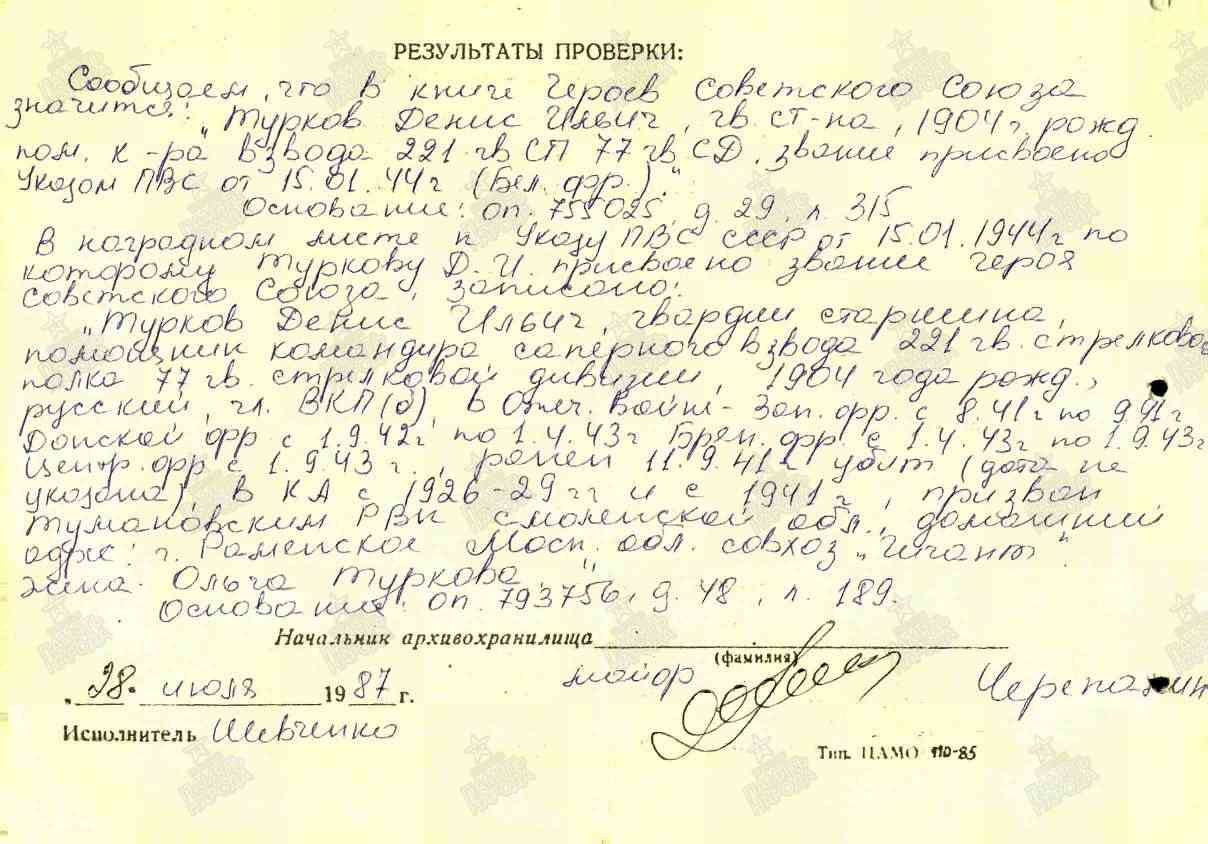 РЕЗУЛЬТАТЫ ПРОВЕРКИ:
Сообщаем, что в книге Героев Советского Союза
значится:
„Турков Денис Ильич, гв. ст-на, 1904 г. рожд.
пом. к-ра взвода 221 гв СП 77 гв. СД. звание присвоено
Указом ПВС от 15.01.44 г (Бел. фр.)."
Основание: оп. 755025, д. 29, л. 315
В наградном листе к Указу ПВС СССР от 15.01.1944 г по
которому Туркову Д. И. присвоено звание героя
Советского Союза, записано:
„Турков Денис Ильич, гвардии старшина,
помощник командира саперного взвода 221 гв. стрелковое
полка 77 гв. стрелковой дивизии, 1904 года рожд.,
русский, чл. ВКП(б), в Отеч. войне - Зап. фр. с 8.41 г по 9.41 г
Донской фр с 1.9.42 г по 1.4.43 г Брян. фр. с 1.4.43 г по 1.9.43 г
Центр. фр с 1.9.43 г., ранен 11.9.41 г убит (дата не
указана), в КА с 1926-29 гг и с 1941 г, призван
Тумановским РВК Смоленской обл., домашний
адрес: г. Раменское Моск. обл. совхоз „Гигант"
жена - Ольга Туркова."
Основание: оп. 793756, д. 48, л. 189.
Начальник архивохранилища
(фамилия)
майор
„28" июля 1987 г.
Исполнитель Шевченко
Тип. ЦАМО 110-85